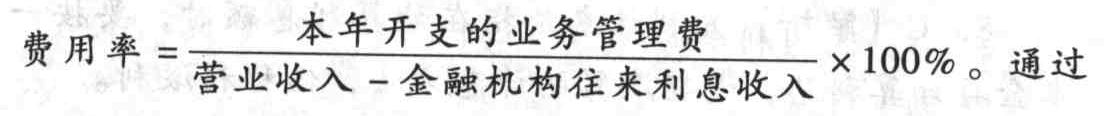 费用率 = \frac{本年开支的业务管理费}{营业收入 - 金融机构往来利息收入} × 100%。通过